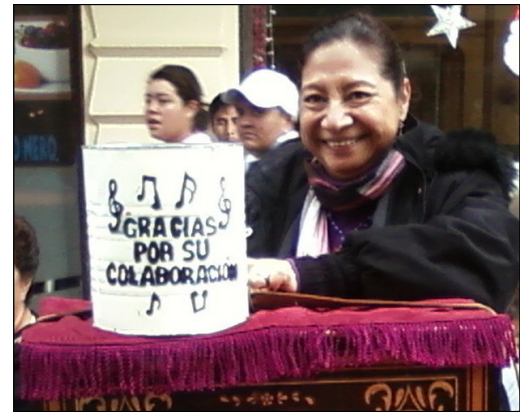 GRACIAS
POR SU
COLABORACIÓN